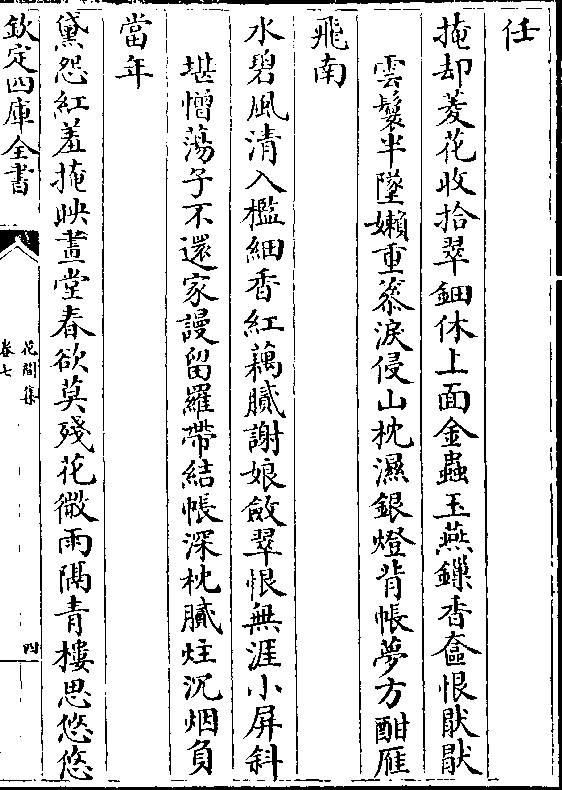 任
掩却菱花收拾翠鈿休上面金蟲玉燕鏁香奩恨猒猒
雲鬟半墜嬾重篸淚侵山枕濕銀燈背帳夢方酣雁
飛南
水碧風清入檻細香紅藕膩謝娘斂翠恨無涯小屏斜
堪憎蕩子不還家謾留羅帶結帳深枕膩炷沉烟負
當年
黛怨紅羞掩映畫堂春欲莫殘花微雨隔青樓思悠悠
欽定四庫全書
花間集
卷七
四